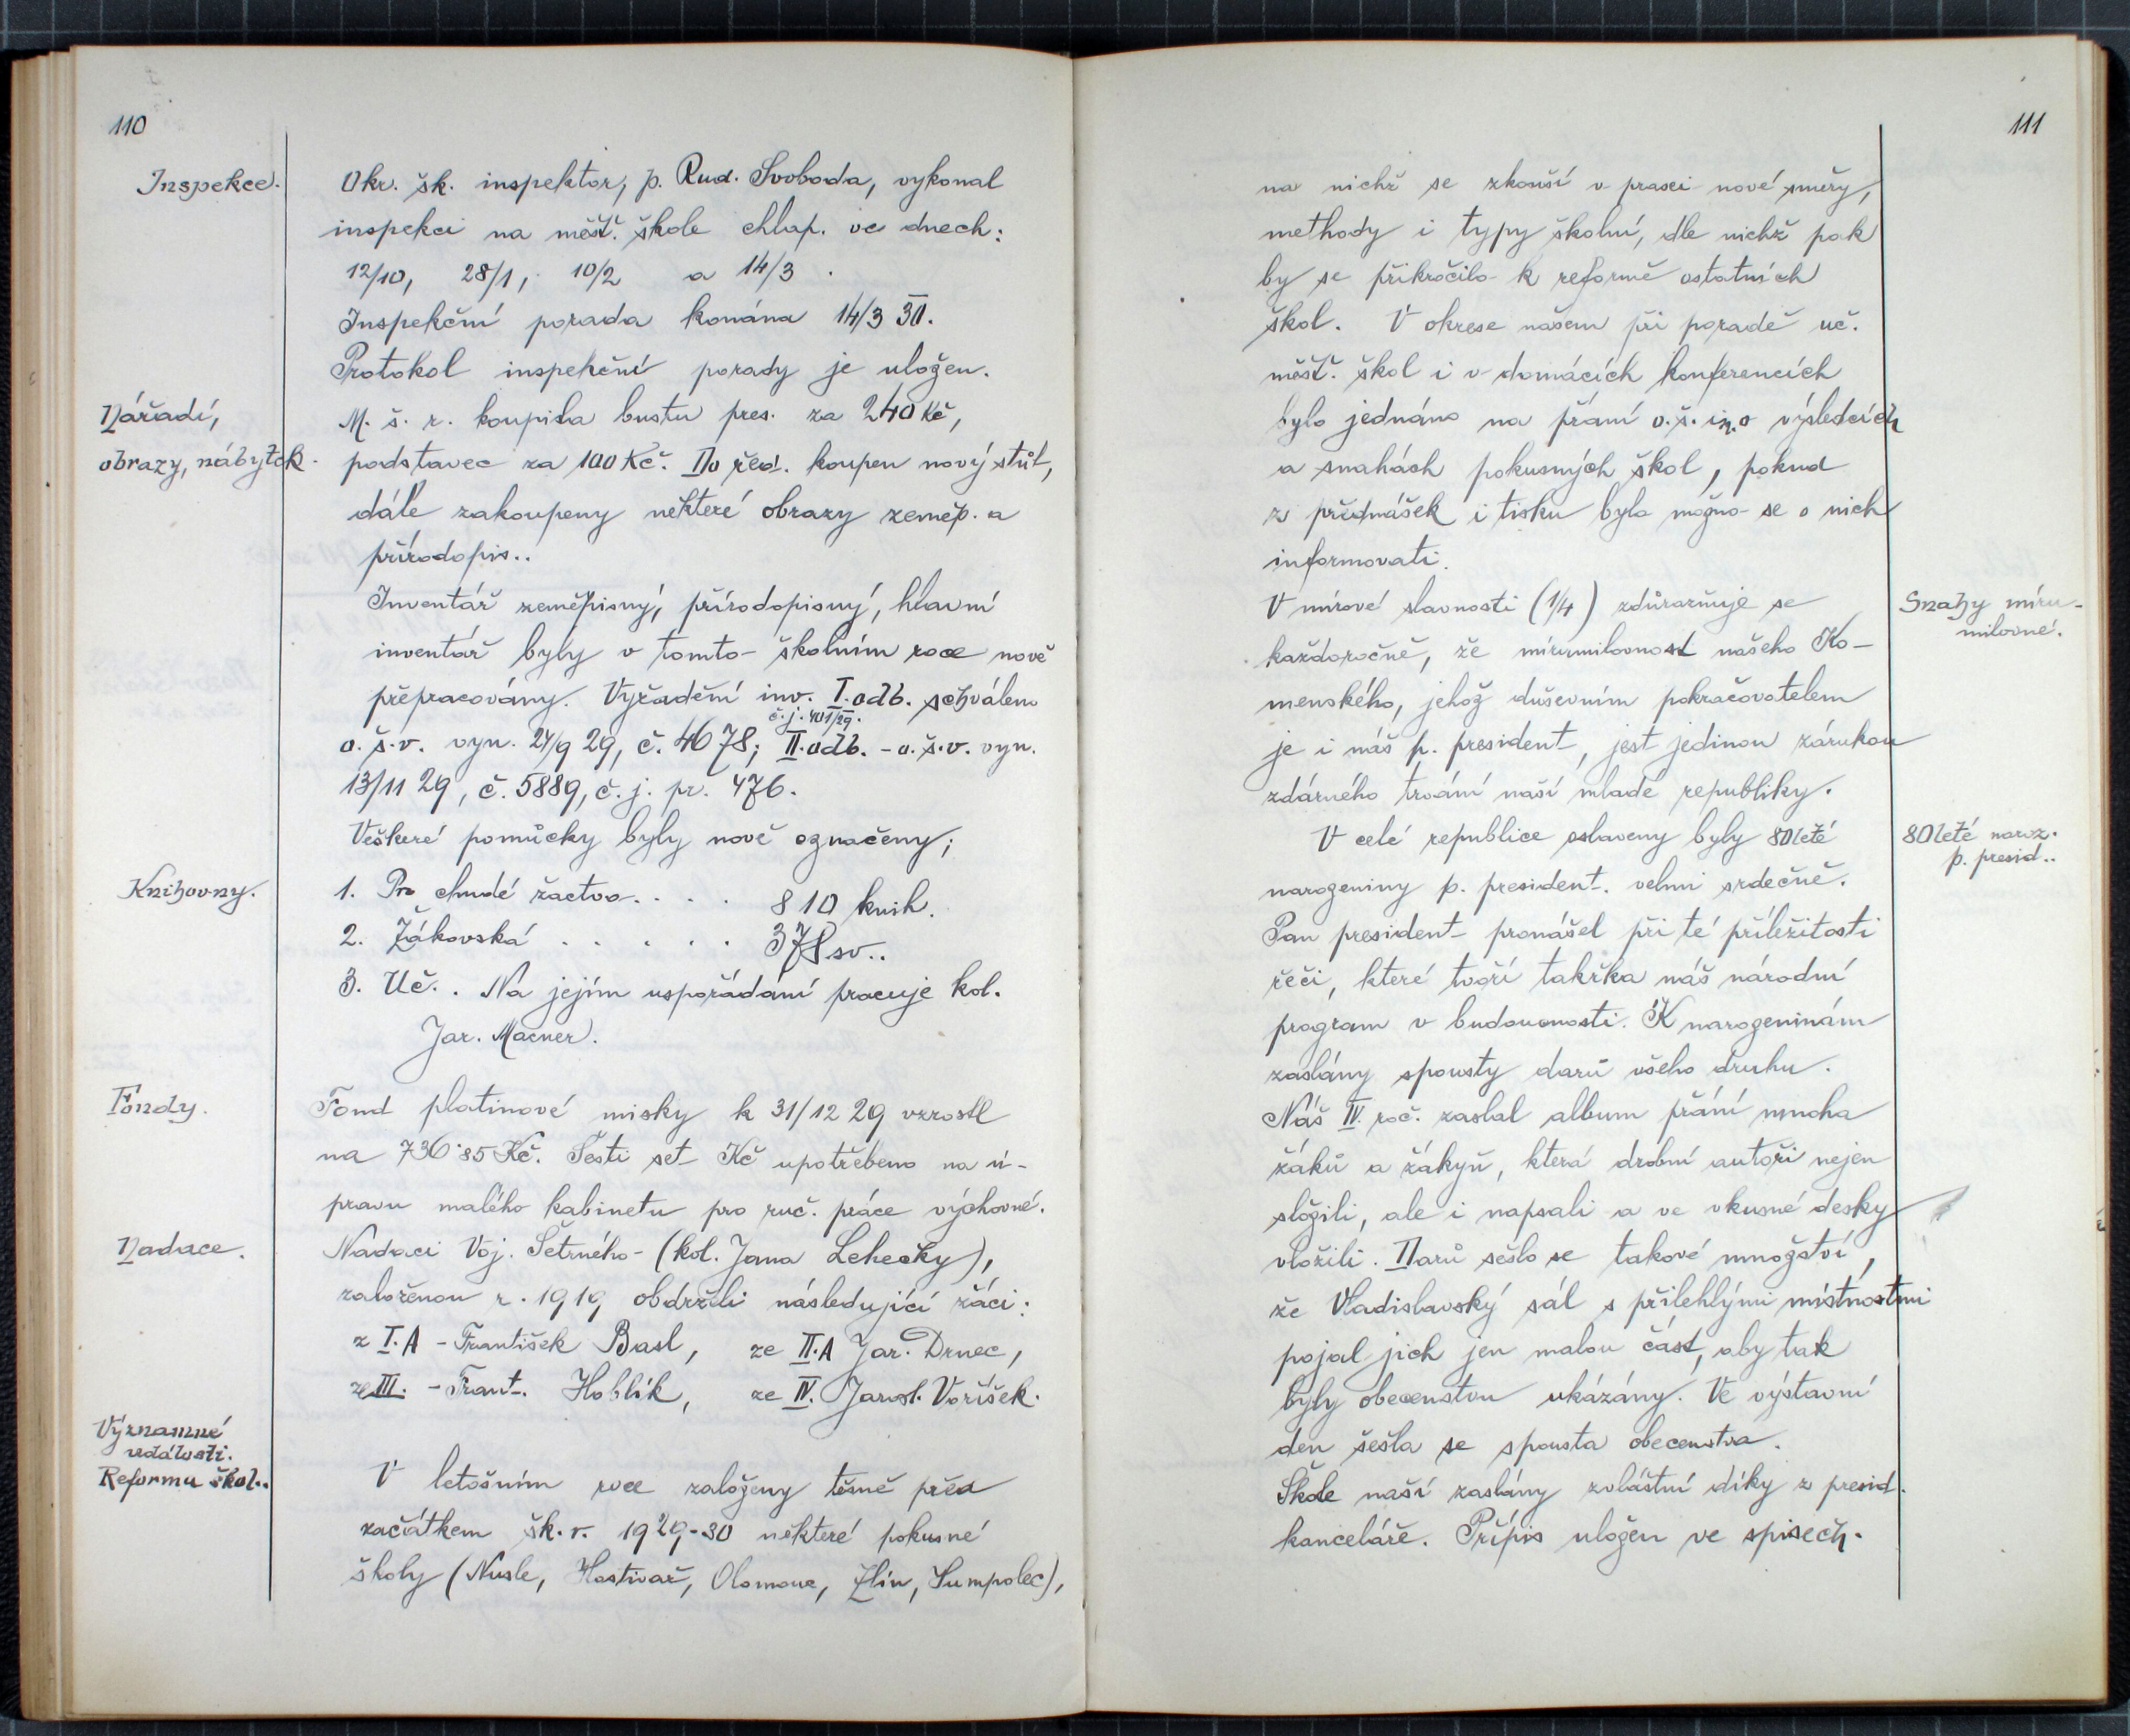 110
Inspekce.
Okr. šk. inspektor, p. Rud. Svoboda, vykonal
inspekci na měšť. škole chlap. ve dnech:
12/10, 28/1, 10/2 a 14/3.
Inspekční porada konána 14/3 30.
Protokol inspekční porady je uložen.
Nářadí,
obrazy, nábytek.
M. š. r. koupila bustu pres. za 240 Kč,
podstavec za 100 Kč. Do řed. koupen nový stůl,
dále zakoupeny některé obrazy zeměp. a
přírodopis..
Inventář zeměpisný, přírodopisný, hlavní
inventář byly v tomto školním roce nově
přepracovány. Vyřadění inv. I. odb. schváleno
č. j. 401/29.
o. š. v. vyn. 24/9 29, č. 4678; II. odb. - o. š. v. vyn.
13/11 29, č. 5889, č. j. pr. 476.
Veškeré pomůcky byly nově označeny;
Knihovny.
1. Pro chudé žactvo. . . . 810 knih.
2. Žákovská . . . . . 378 sv..
3. Uč.. Na jejím uspořádání pracuje kol.
Jar. Macner.
Fondy.
Fond platinové misky k 31/12 29 vzrostl
na 736·85 Kč. Šesti set Kč upotřebeno na ú-
pravu malého kabinetu pro ruč. práce výchovné.
Nadace.
Nadaci Voj. Šetrného (kol. Jana Lehečky),
založenou r. 1919 obdrželi následující žáci:
z I. A - František Basl, ze II. A Jar. Drnec,
ze III. - Frant. Hoblík, ze IV. Jarosl. Voříšek.
Významné
události.
Reforma škol..
V letošním roce založeny těsně před
začátkem šk. r. 1929-30 některé pokusné
školy (Nusle, Hostivař, Olomouc, Zlín, Humpolec),
111
na nichž se zkouší v praxi nové směry,
methody i typy školní, dle nichž pak
by se přikročilo k reformě ostatních
škol. V okrese našem při poradě uč.
měšť. škol i v domácích konferencích
bylo jednáno na přání o. š. in. o výsledcích
a snahách pokusných škol, pokud
z přednášek i tisku bylo možno se o nich
informovati.
Snahy míru-
milovné.
V mírové slavnosti (1/4) zdůrazňuje se
každoročně, že mírumilovnost našeho Ko-
menského, jehož duševním pokračovatelem
je i náš p. president, jest jedinou zárukou
zdárného trvání naší mladé republiky.
80leté naroz.
p. presid..
V celé republice oslaveny byly 80leté
narozeniny p. president. velmi srdečně.
Pan president pronášel při té příležitosti
řeči, které tvoří takřka náš národní
program v budoucnosti. K narozeninám
zaslány spousty darů všeho druhu.
Náš IV. roč. zaslal album přání mnoha
žáků a žákyň, která drobní autoři nejen
složili, ale i napsali a ve vkusné desky
vložili. Darů sešlo se takové množství,
že Vladislavský sál s přilehlými místnostmi
pojal jich jen malou část, aby tak
byly obecenstvu ukázány. Ve výstavní
den sešla se spousta obecenstva.
Škole naší zaslány zvláštní díky z presid.
kanceláře. Přípis uložen ve spisech.